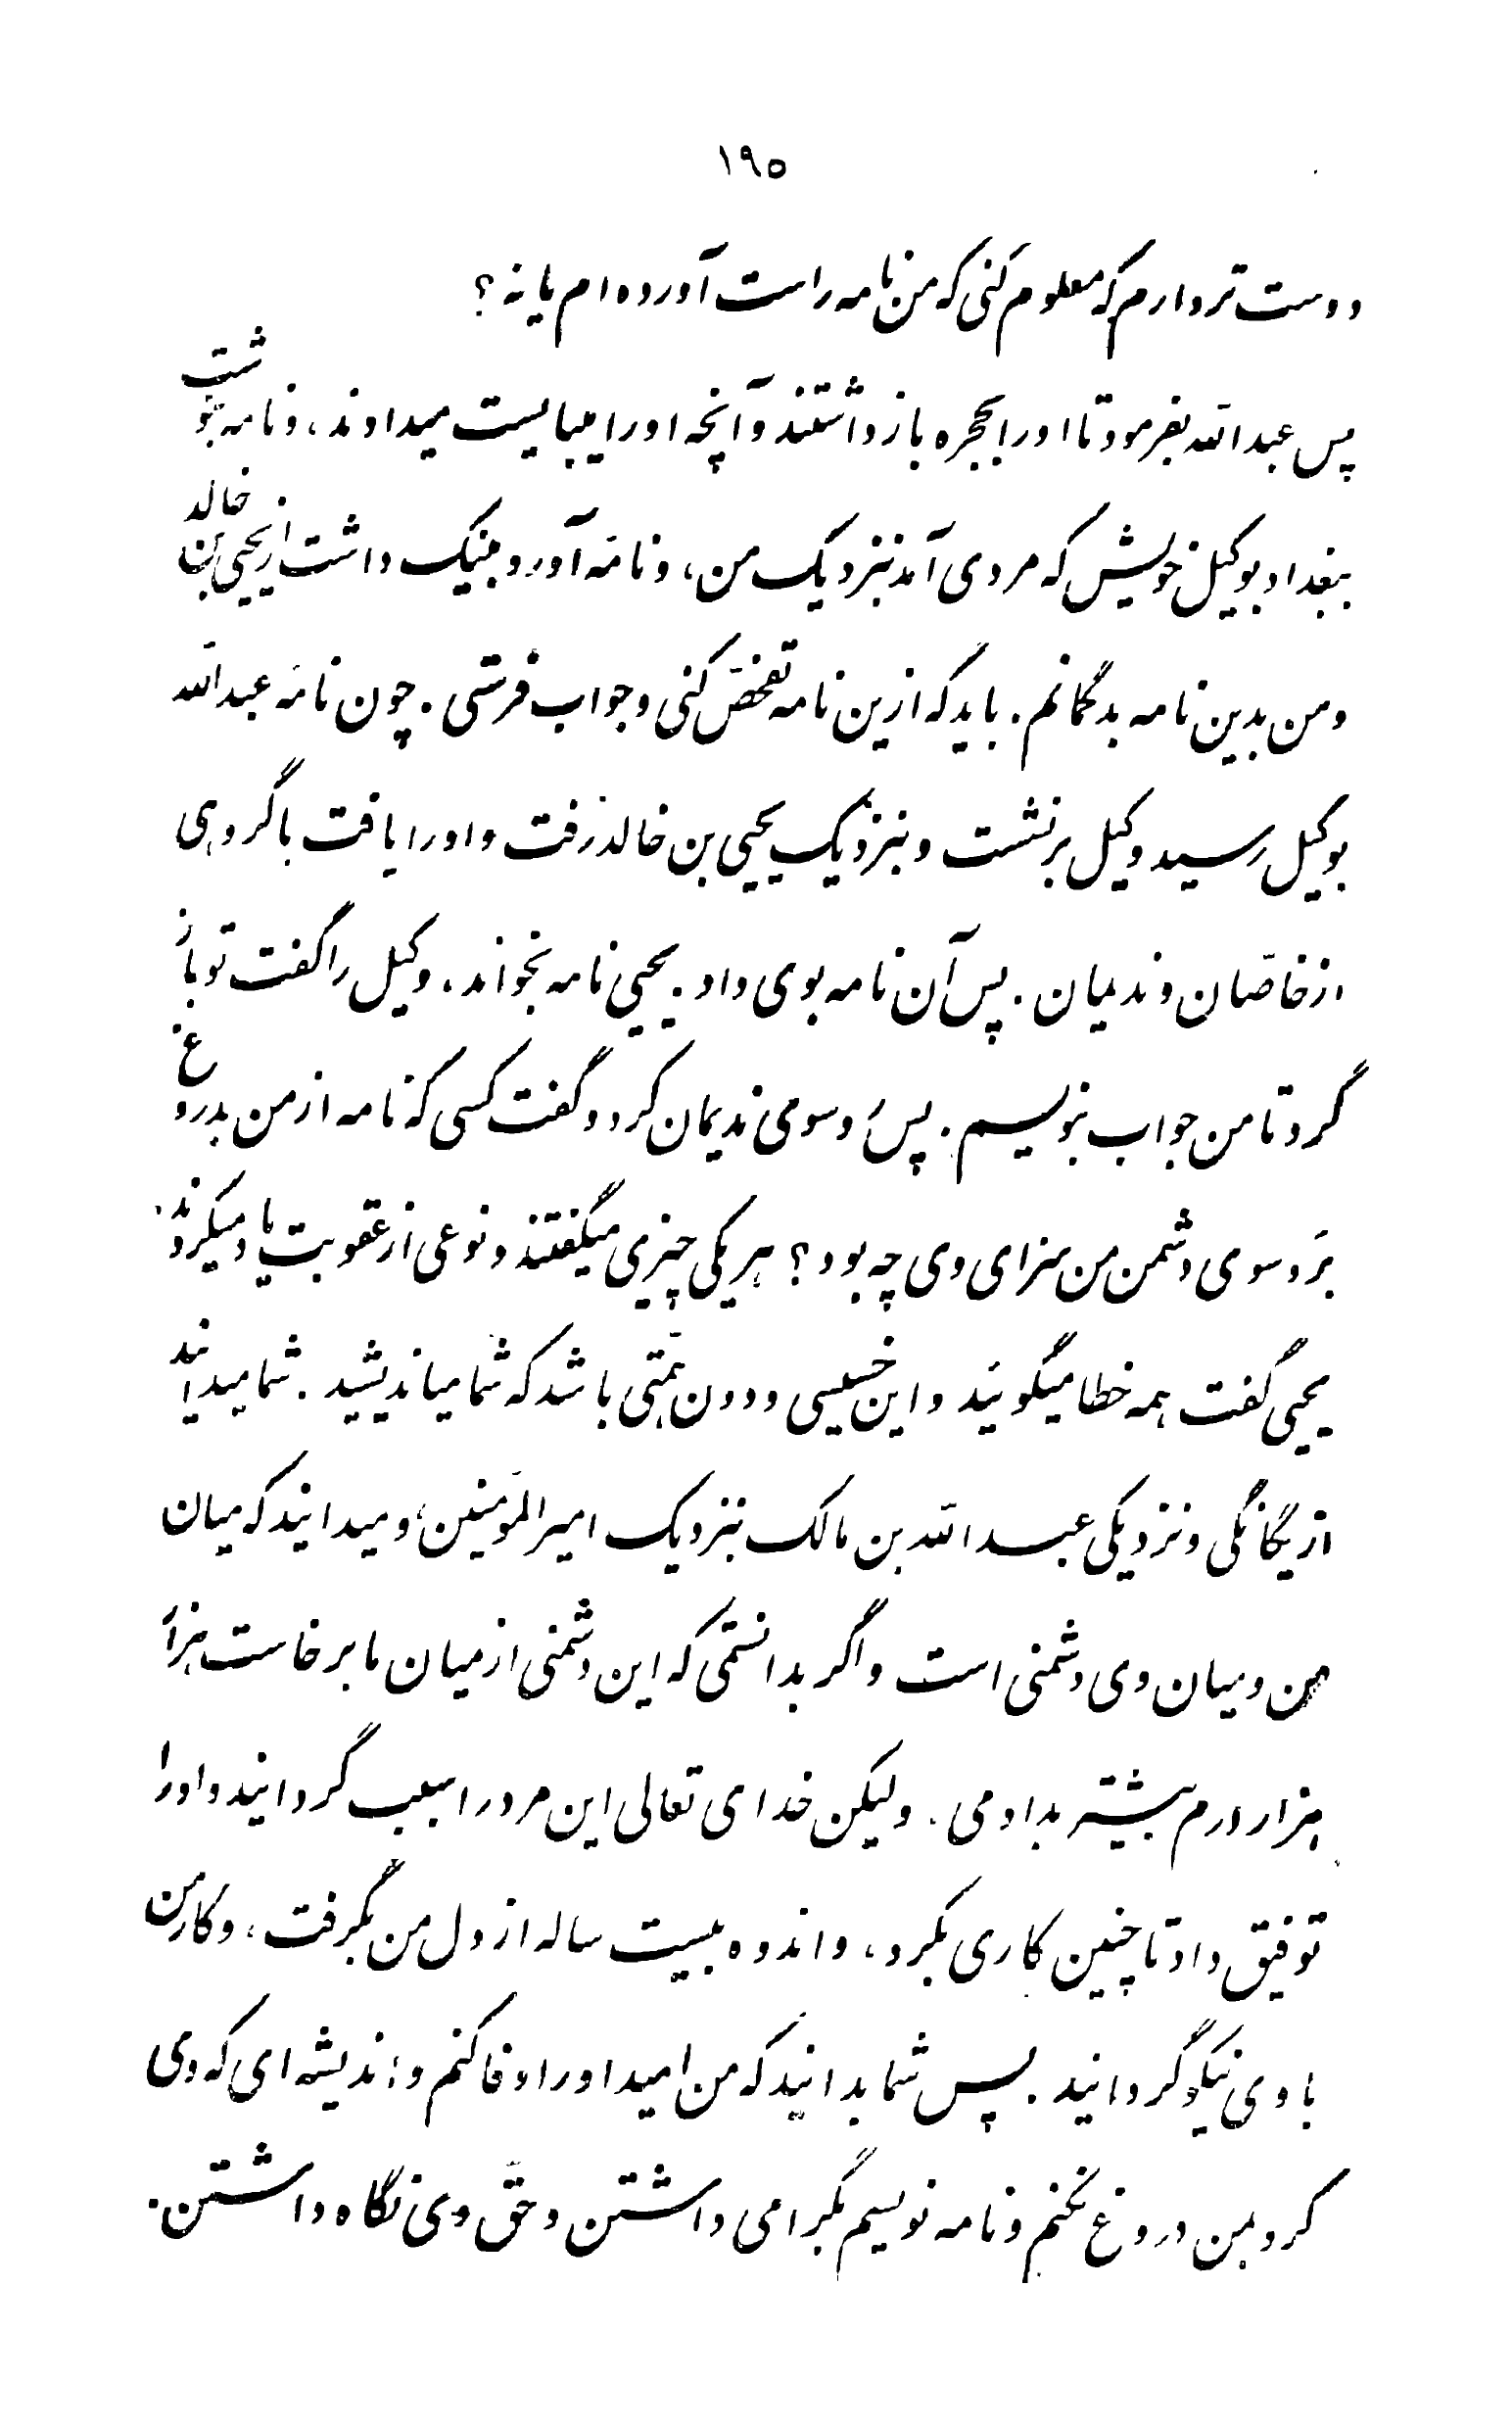 ۱۹۵
دوست تر دارم که معلوم کنی که من نامه راست آورده ام یا نه؟
پس عبدالله بفرمود تا او را بحجره باز داشتند و آنچه او را میبایست میدادند، و نامه نبوشت
ببغداد بوکیل خویش که مردی آمد بنزدیک من، و نامهٔ آورد بنیک داشت از یحیی بن خالد
و من بدین نامه بدگمانم. باید که ازین نامه تفحّص کنی و جواب فرستی. چون نامهٔ عبدالله
بوکیل رسید وکیل برنشست و بنزدیک یحیی بن خالد رفت و او را یافت با گروهی
از خاصّان و ندیمان. پس آن نامه بوی داد. یحیی نامه بخواند، وکیل را گفت تو باز
گرد تا من جواب بنویسم. پس رُ وسوی ندیمان کرد و گفت کسی که نامه از من بدروغ
بَرَد سوی دشمن من سزای وی چه بود؟ هر یکی چیزی میگفتند و نوعی از عقوبت یاد میکردند.
یحیی گفت همه خطا میگوئید و این خسیسی و دون همّتی باشد که شما میاندیشید. شما میدانید
از یگانگی و نزدیکی عبدالله بن مالک بنزدیک امیرالمؤمنین، و میدانید که میان
من و میان وی دشمنی است و اگر بدانستمی که این دشمنی از میان ما برخاست هزار
هزار درم بیشتر بدادمی. ولیکن خدای تعالی این مرد را سبب گردانید و او را
توفیق داد تا چنین کاری بکرد، و اندوه بیست ساله از دل من بگرفت، و کار من
با وی نیکو گردانید. پس شما بدانید که من امید او را وفا کنم و اندیشه ای که وی
کرد بمن دروغ نکنم و نامه نویسم بگرامی داشتن و حقّ وی نگاه داشتن.